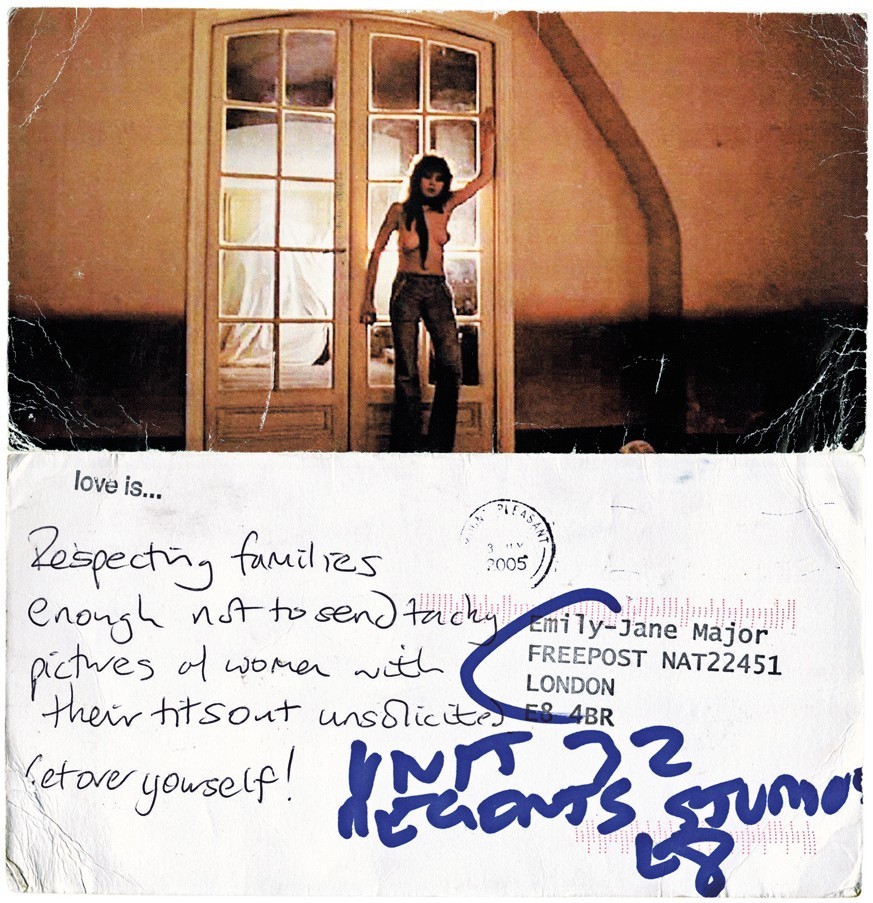 love is...
PLEASANT
2005
Respecting families
enough not to send tacky
pictures of women with
their tits out unsolicited
Get over yourself!
Emily-Jane Major
FREEPOST NAT22451
LONDON
E8 4BR
UNIT 22
REGENTS STUDIOS
E8